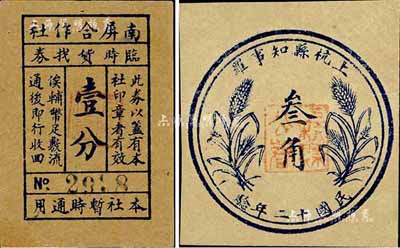 南屏合作社
臨時貨找券
此券以蓋有本
社印章者有效
壹分
俟輔幣足敷流
通後即行收回
No. 2698
本社暫時通用
上杭縣知事羅
叁角
民國十二年發